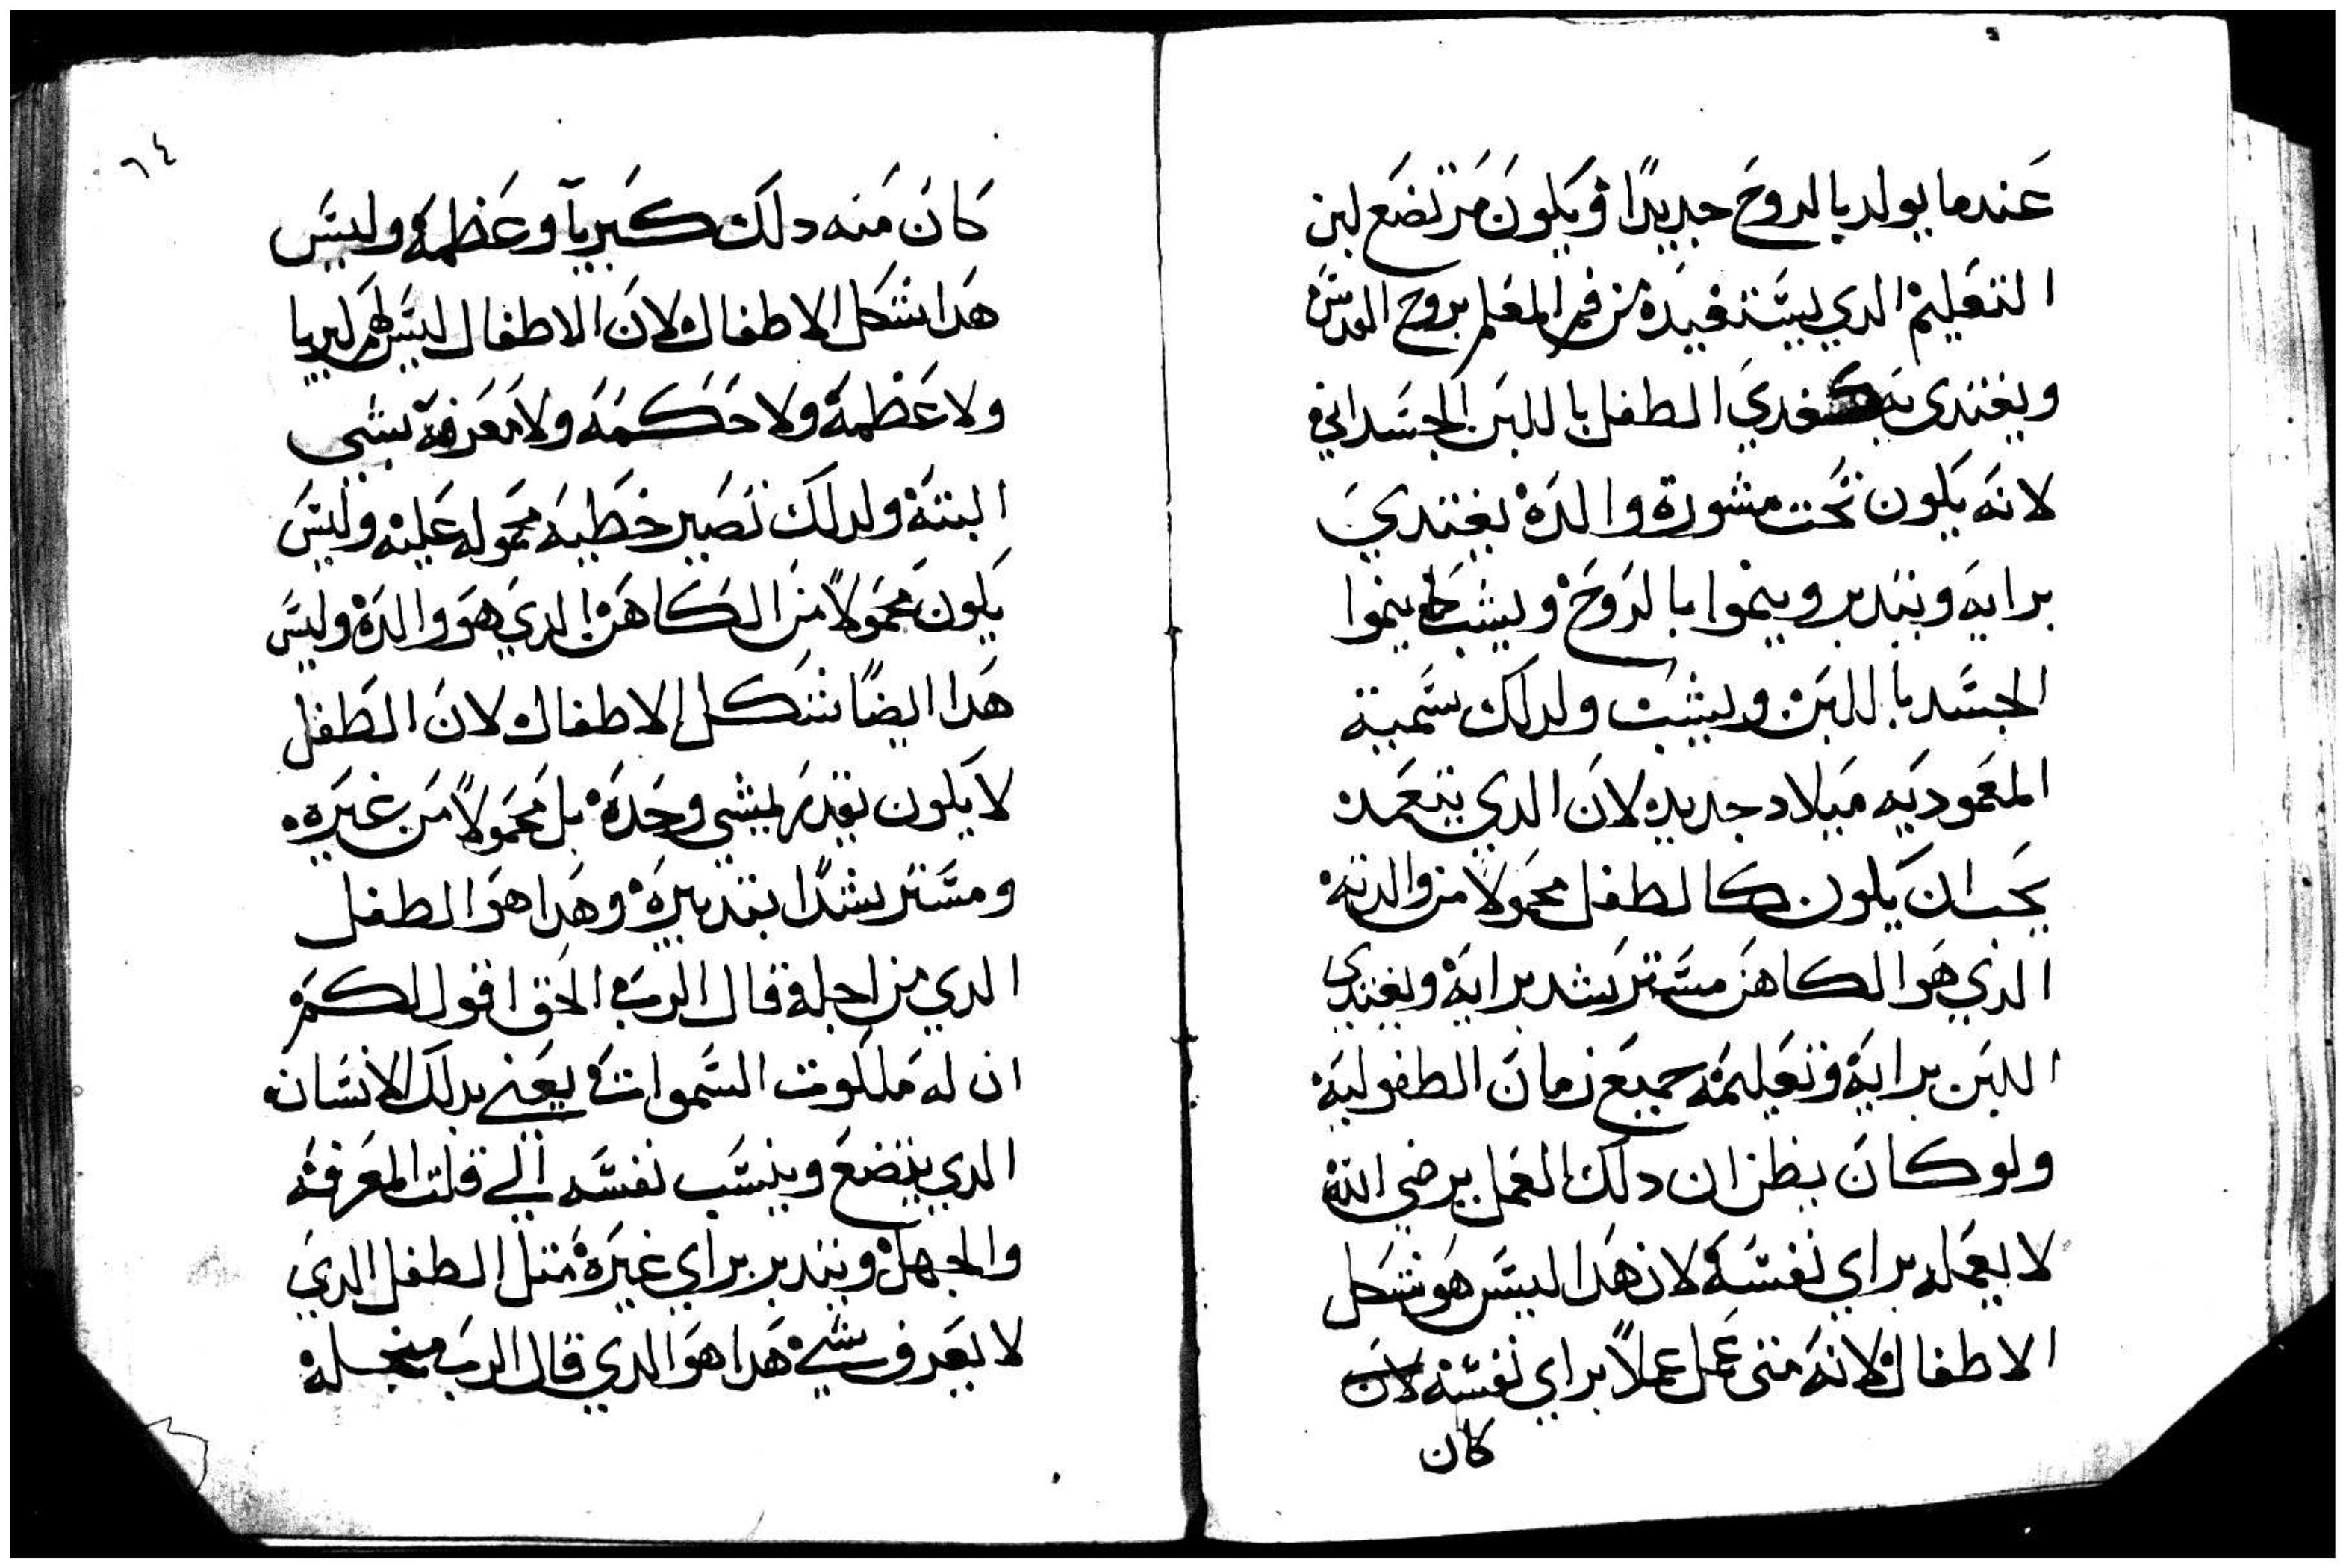 عندما يولد بالروح جديدًا ويكون مرتضع لبن
التعليم الدي يستفيده من فم المعلم بروح القدس
ويغتدى به كمغدي الطفل باللبن الجسداني
لانه يكون تحت مشورة والده يغتدي
برايه ويتدبر وينموا بالروح ويثبت كما ينموا
الجسد باللبن ويثبت ولدلك سمية
المعموديه ميلاد جديد لان الدي يتعمد
يجب ان يكون كالطفل محمولا من والدته
الذي هو الكاهن مسترشد برايه ويغتدي
اللبن برايه وتعليمه جميع زمان الطفوليه
ولو كان يظن ان دلك العمل يرضي الله
لا يعمله براي نفسه لان هدا ليس هو شكل
الاطفال لانه متى عمل عملاً براي نفسه لان
كان
٦٤
كان منه دلك كبريآ وعظمه وليس
هدا شكل الاطفال لان الاطفال ليس لهم كبريا
ولا عظمة ولا حكمه ولا معرفة بشى
البتة ولدلك تصير خطيه محموله عليه وليس
يكون محمولاً من الكاهن الدي هو والده وليس
هدا ايضًا شكل الاطفال لان الطفل
لا يكون يقدر يمشي وحده بل محمولاً من غيره
ومسترشدًا بتدبيره وهدا هو الطفل
الدي من اجله قال الرب الحق اقول لكم
ان له ملكوت السموات يعني بدلك الانسان
الدي يتضع وينسب نفسه الي قلت المعرفه
والجهل ويتدبر براي غيره متل الطفل الدي
لا يعرف شي هدا هو الدي قال الرب منجله